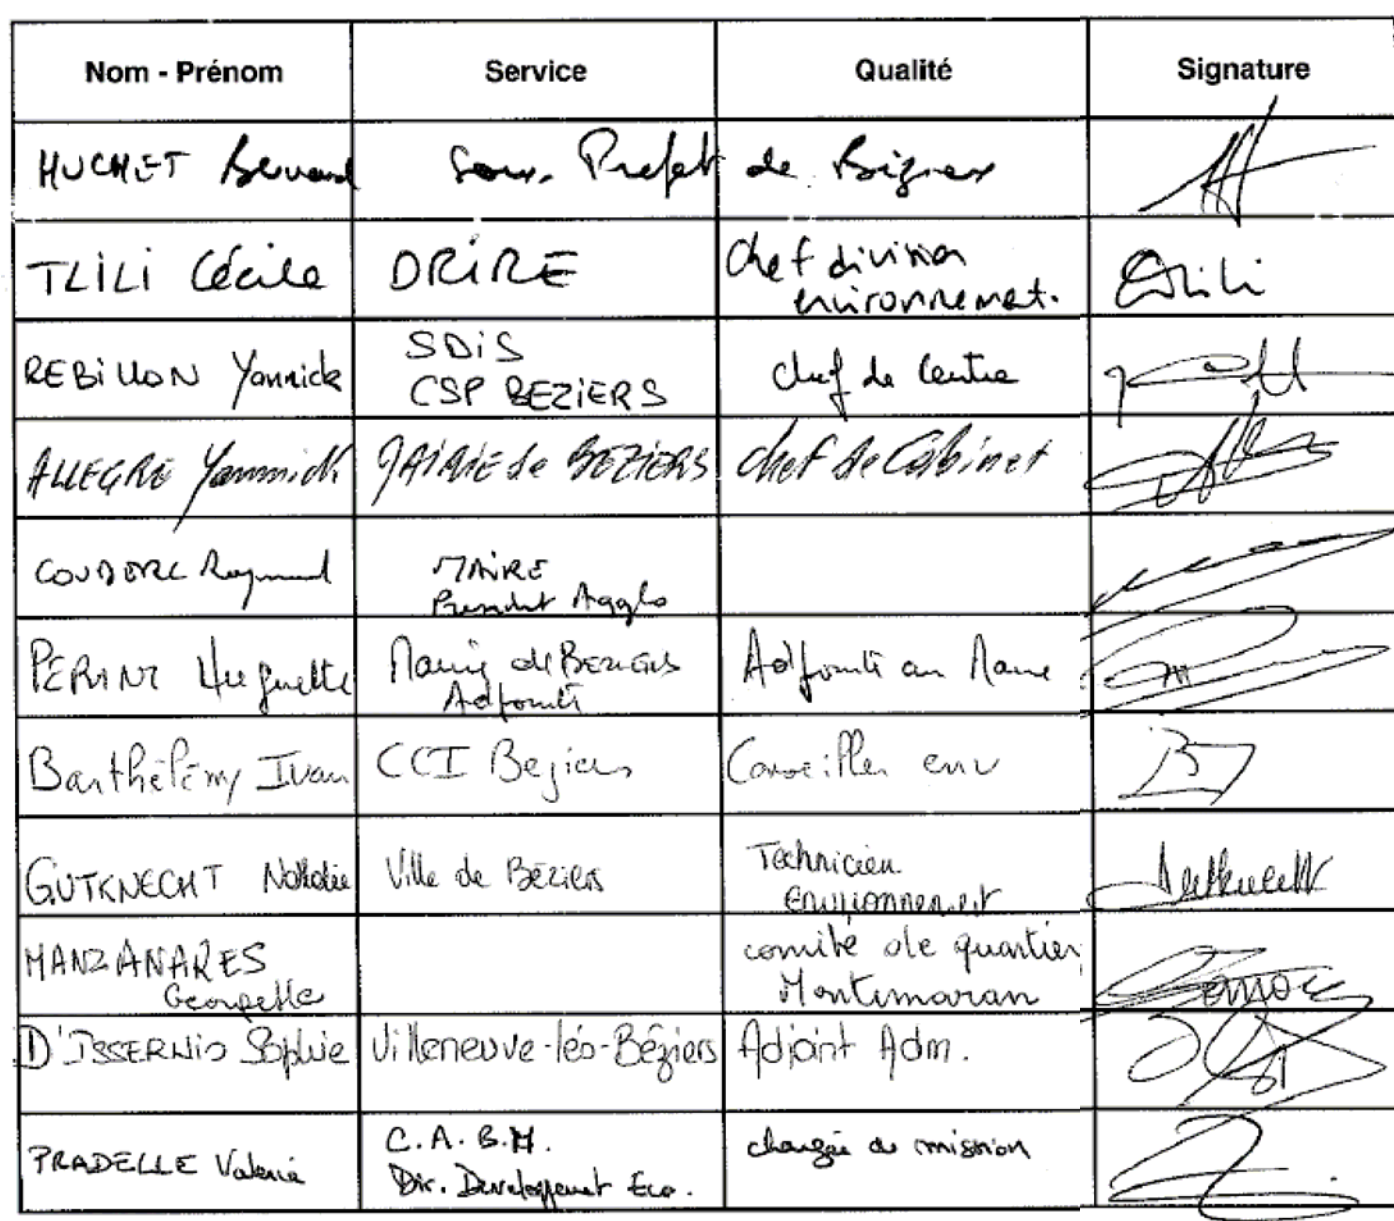 Nom - Prénom Service Qualité Signature
HUCHET Bernard Sous. Prefet de Béziers
TLILI Cécile DRIRE Chef division
environnemet.
REBILLON Yannick SDIS chef de Centre
CSP BEZIERS
ALLEGRE Yannick MAIRIE de BEZIERS Chef de Cabinet
COUDERC Raymond MAIRE
President Agglo
PERINI Huguette Mairie de BEZIERS Adjointe au Maire
Adjointe
Barthélémy Ivan CCI Beziers Conseiller env
GUTKNECHT Nathalie Ville de Béziers Technicien
Environnement
MANZANARES comité de quartier
Georgette Montimaran
D'ISSERNIO Sophie Villeneuve-lés-Béziers Adjoint Adm.
PRADELLE Valerie C.A.B.M. chargée de mission
Dir. Developpement Eco.